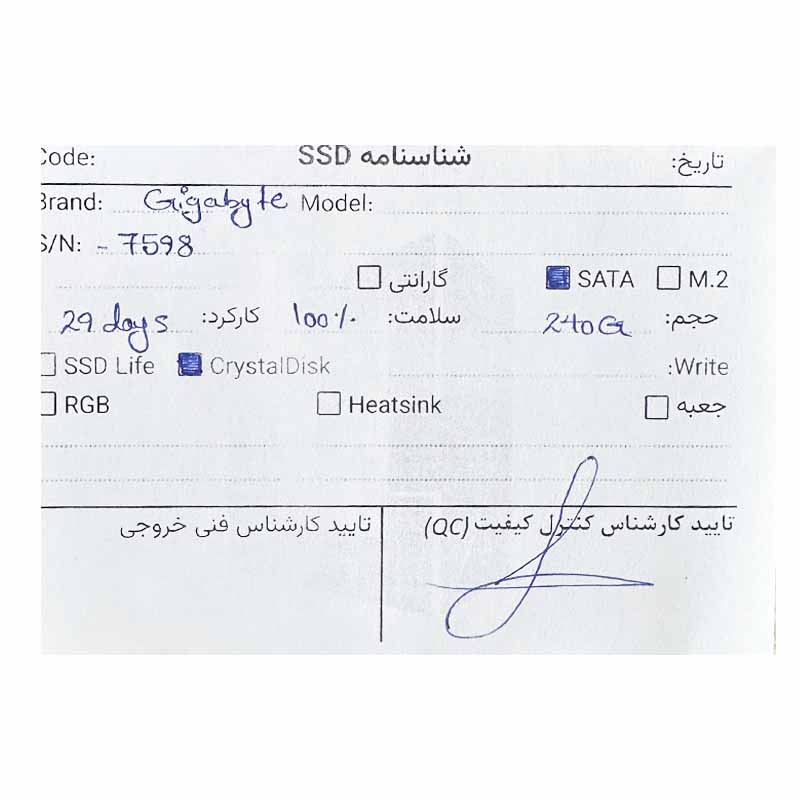 Code: شناسنامه SSD تاریخ:
Brand: Gigabyte Model:
S/N: - 7598
گارانتی SATA M.2
حجم: 240G سلامت: 100% کارکرد: 29 days
SSD Life CrystalDisk Write:
RGB Heatsink جعبه
تایید کارشناس کنترل کیفیت (QC) تایید کارشناس فنی خروجی